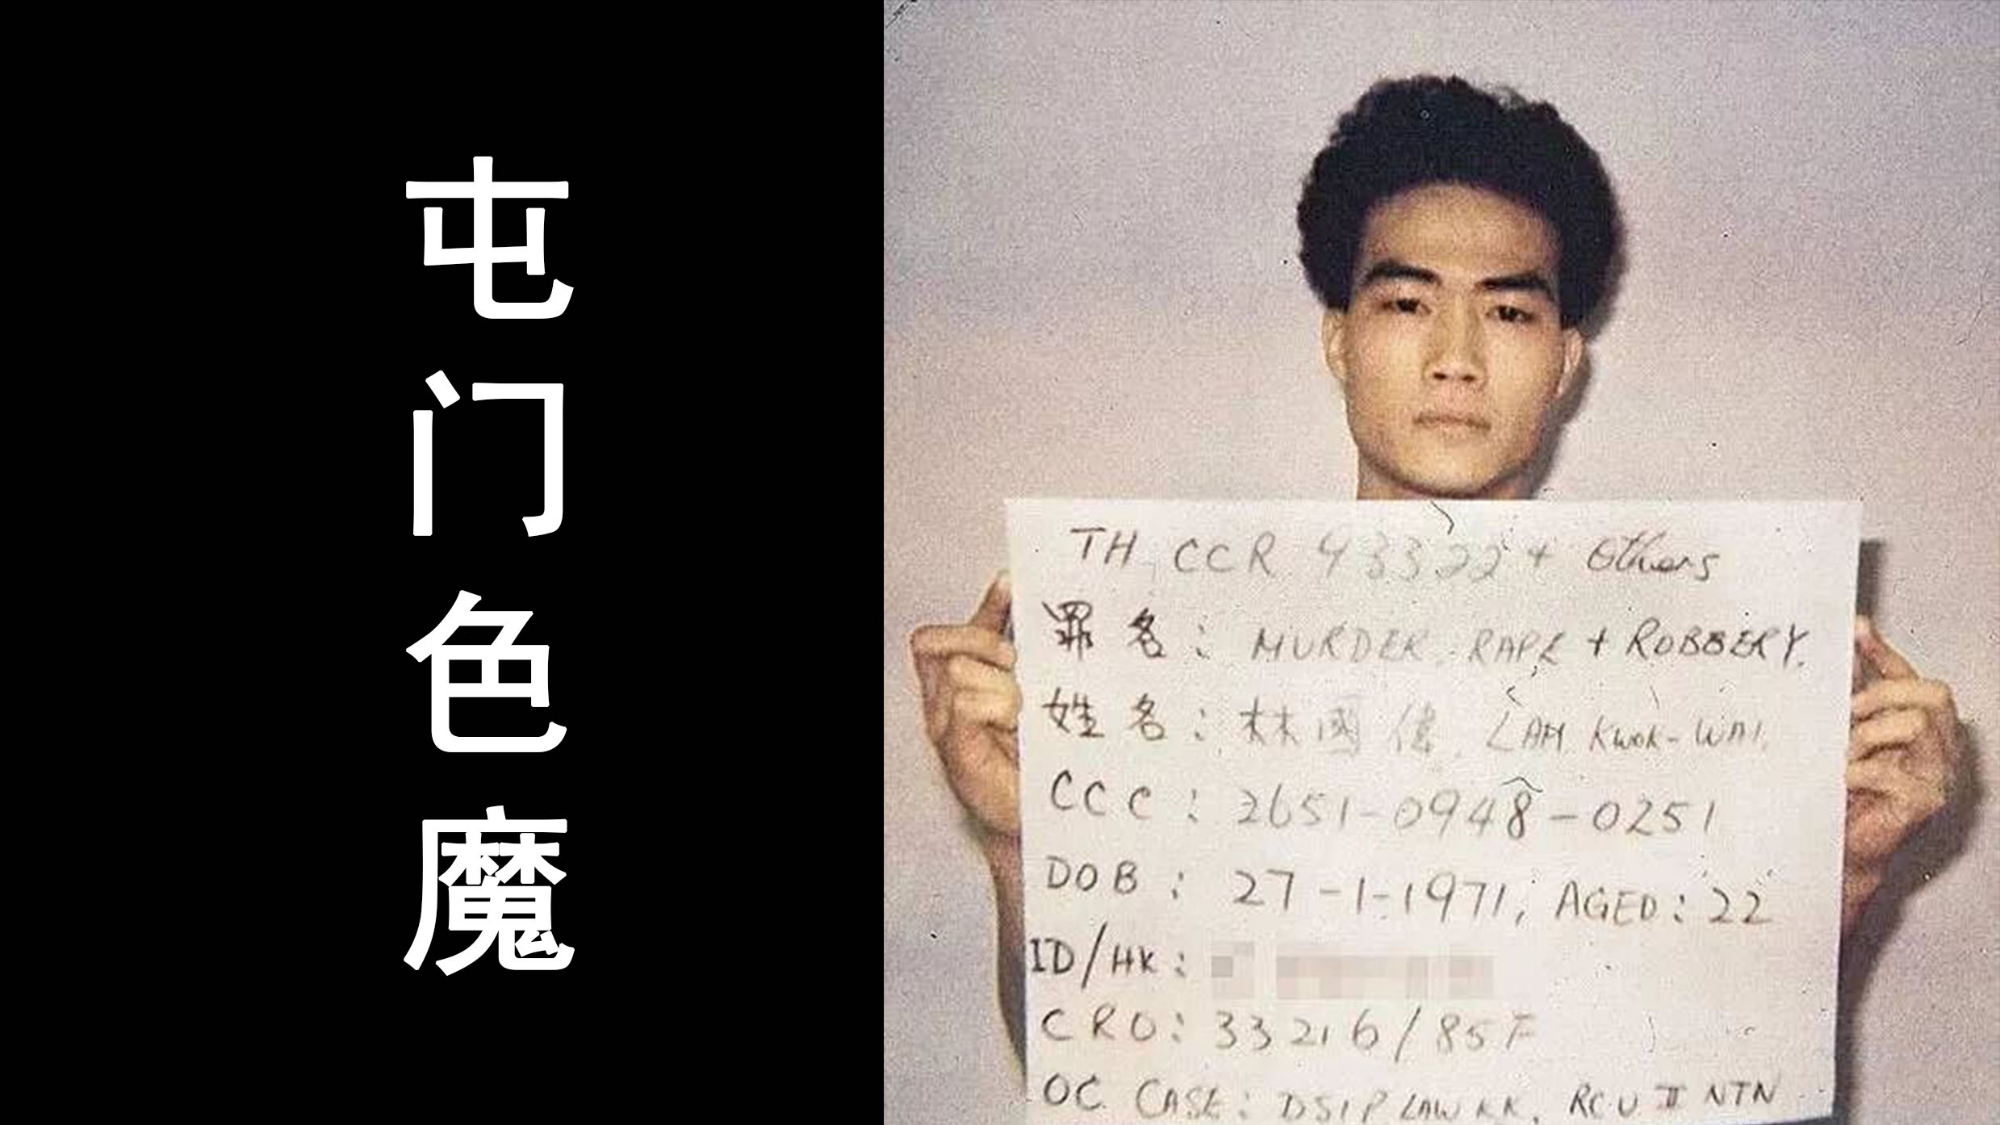 屯门色魔
TH CCR 93322 + Others
罪名: MURDER, RAPE + ROBBERY.
姓名: 林國偉, LAM Kwok-WAI,
CCC: 2651-0948-0251
DOB: 27-1-1971, AGED: 22
ID/HK:
CRO: 33216/85F
OC CASE: DSIP LAW KK, RCU II NTN